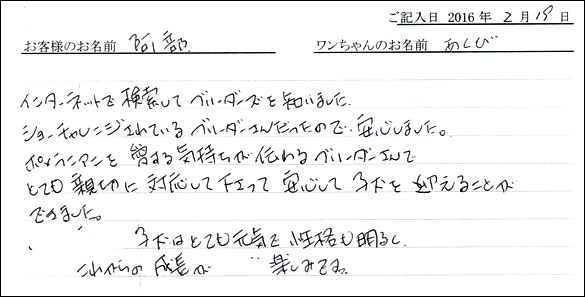 ご記入日 2016 年 2 月 19 日
お客様のお名前 阿部 ワンちゃんのお名前 あくび
インターネットで検索してブリーダーズを知いました.
ショーチャレンジされているブリーダーさんだったので、安心しました。
ポメラニアンを愛する気持ちが伝わるブリーダーさんで
とても親切に対応して下さって安心して子犬を迎えることが
できました。
子犬はとても元気で性格も明るく、
これからの成長が楽しみです。